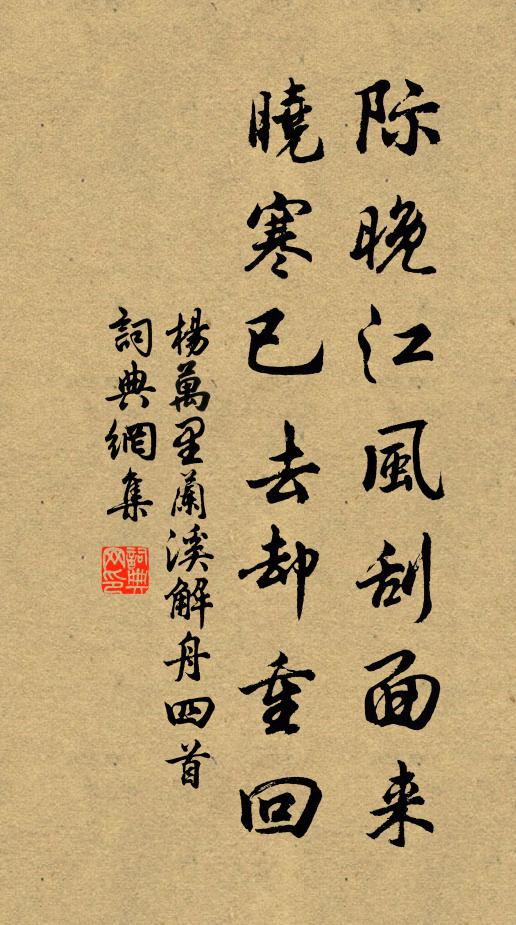 际晚江風刮面来
曉寒已去却重回
楊萬里蘭溪解舟四首
詞典網集
詞典网印